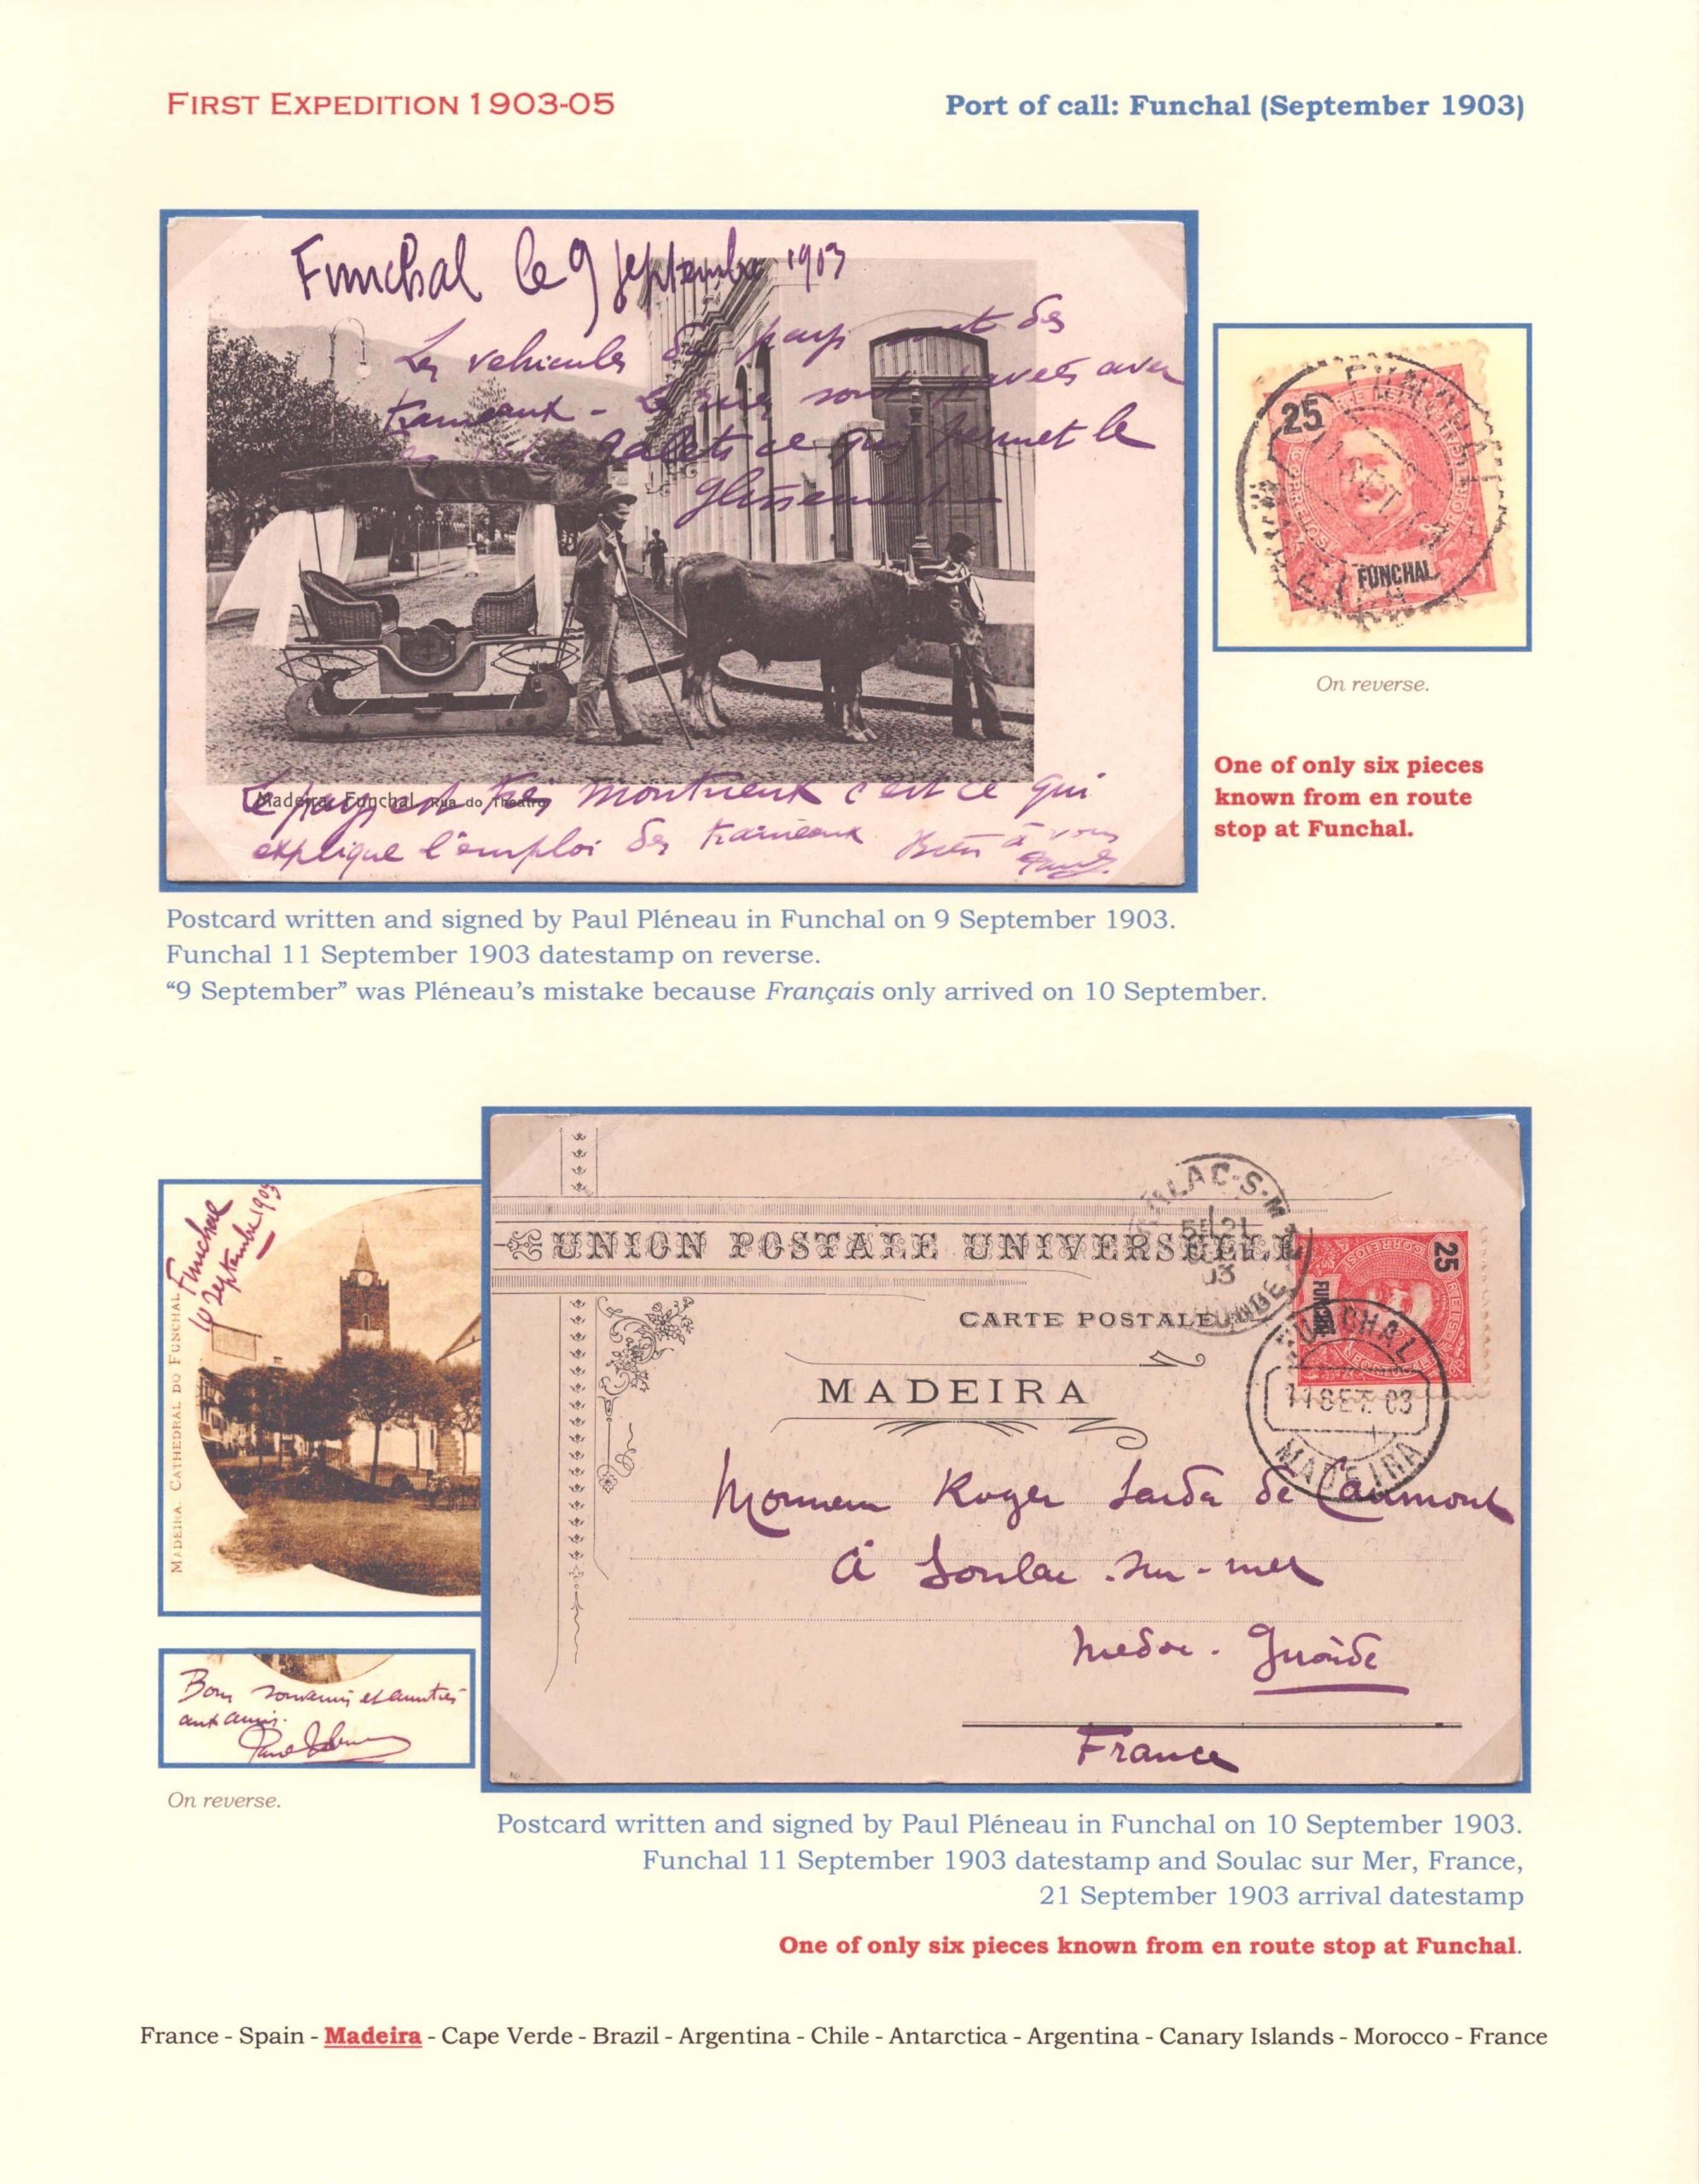 FIRST EXPEDITION 1903-05
Port of call: Funchal (September 1903)
Funchal le 9 Septembre 1903
Les vehicules du pays sont des
traineaux - Les rues sont pavées avec
galets ce qui permet le
glissement -
Madeira. Funchal. Rua do Theatro
Le pays est très montueux c'est ce qui
explique l'emploi des traineaux Bien à vous
25
FUNCHAL
FUNCHAL
On reverse.
One of only six pieces
known from en route
stop at Funchal.
Postcard written and signed by Paul Pléneau in Funchal on 9 September 1903.
Funchal 11 September 1903 datestamp on reverse.
“9 September” was Pléneau’s mistake because Français only arrived on 10 September.
Funchal
10 Septembre 1903
MADEIRA. CATHEDRAL DO FUNCHAL
Bons souvenirs et amitiés
aux amis.
On reverse.
UNION POSTALE UNIVERSELLE
CARTE POSTALE
MADEIRA
25
CORREIOS
FUNCHAL
FUNCHAL
11 SET. 03
MADEIRA
Monsieur Roger Sarda de Caumont
à Soulac-sur-mer
Medoc - Gironde
France
Postcard written and signed by Paul Pléneau in Funchal on 10 September 1903.
Funchal 11 September 1903 datestamp and Soulac sur Mer, France,
21 September 1903 arrival datestamp
One of only six pieces known from en route stop at Funchal.
France - Spain - Madeira - Cape Verde - Brazil - Argentina - Chile - Antarctica - Argentina - Canary Islands - Morocco - France